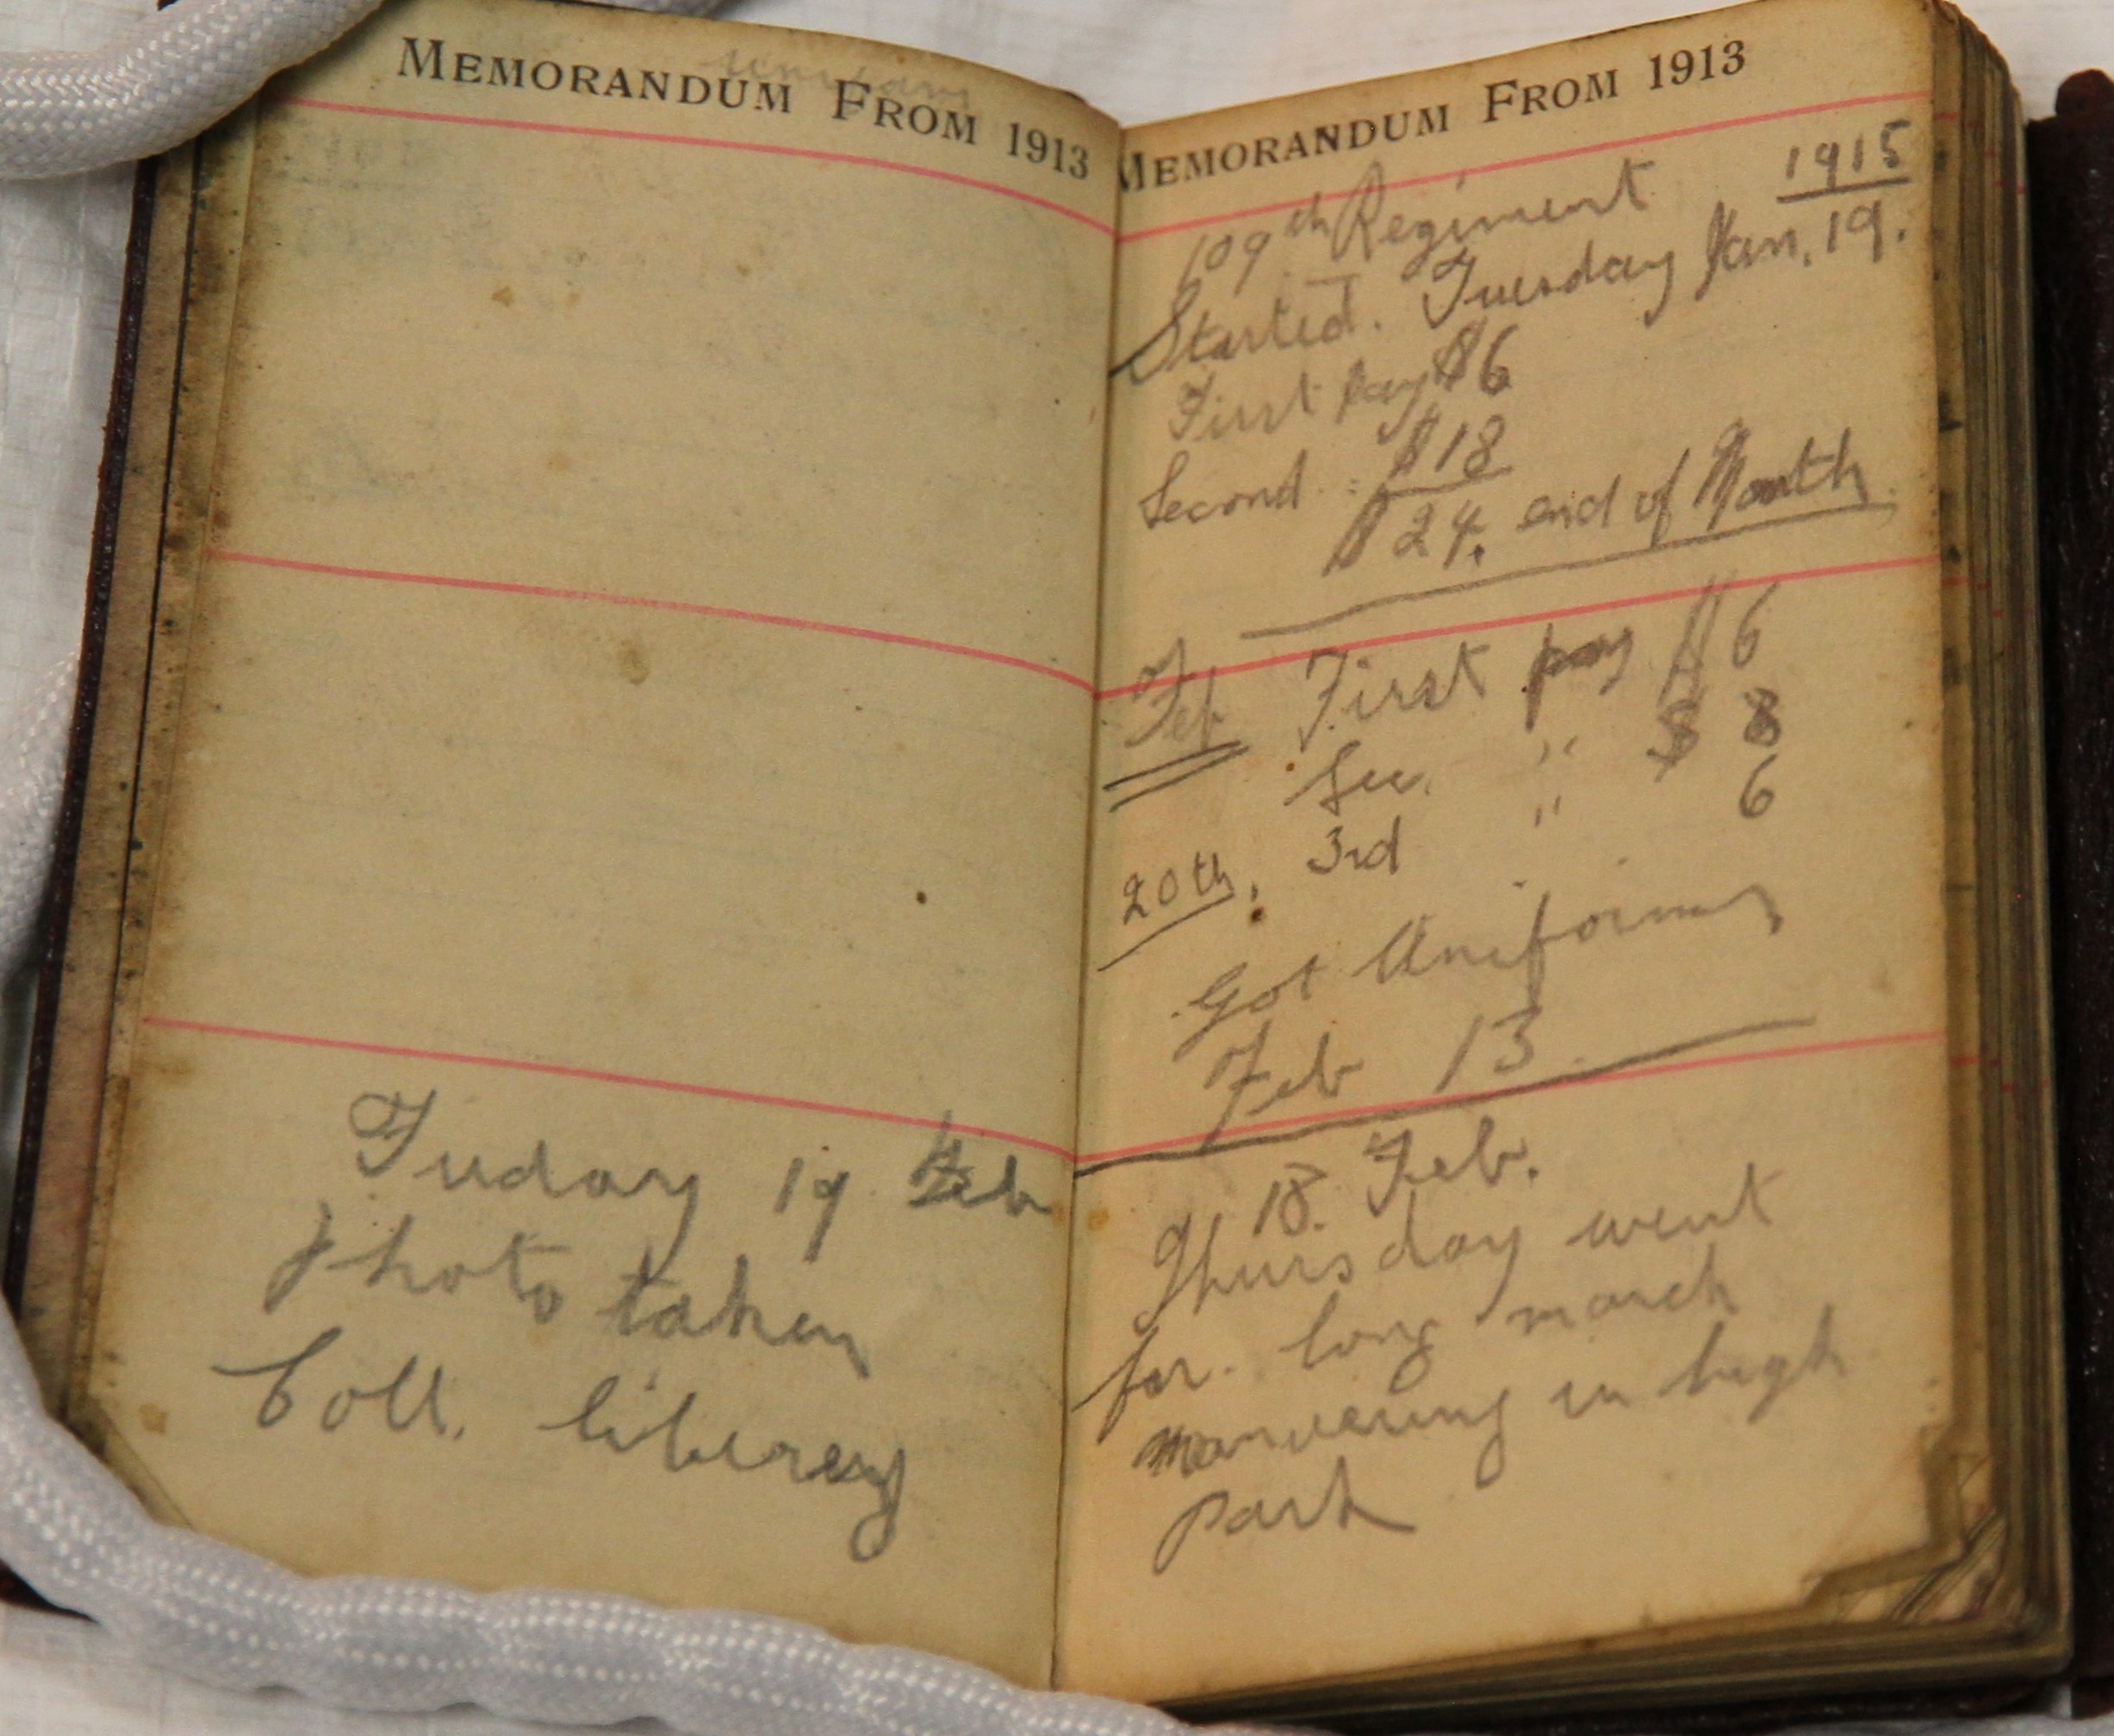 MEMORANDUM FROM 1913
Fuday 19 Feb
photo taken
Coll. liberey
MEMORANDUM FROM 1913
1915
109th Regiment
Started. Tuesday Jan. 19.
First Pay $6
Second : $18
$24. end of Month
Feb First pay $6
Sec. " $ 8
20th. 3rd " 6
Got Uniforms
Feb 13.
18. Feb.
Thursday went
for long march
manvering in high
Park